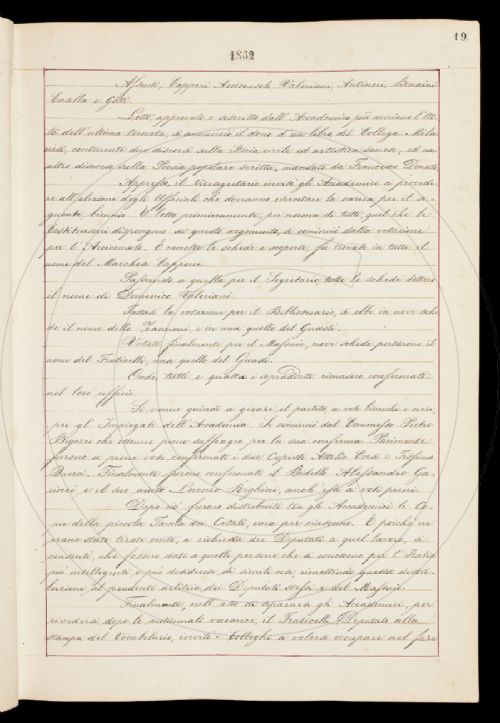 19
1862
Assenti, Capponi Arciconsolo, Valeriani, Antinori, Bonaini
Casella e Gotti.
Letto approvato e sottoscritto dall' Accademico più anziano l' At-
to dell' ultima tornata, si annunziò il dono d' un libro del Collega Mila-
nesi, contenente due discorsi sulla Storia civile ed artistica sanese, ed un
altro discorso sulla Poesia popolare scritto, mandato da Francesco Donati.
Appresso, il Vicesegretario invitò gli Accademici a procede-
re all' elezione degli Uffiziali che dovranno esercitare la carica per il se-
guente biennio. E letto primieramente, per norma di tutti, quel che le
Costituzioni dispongono su questo argomento, si cominciò dalla votazione
per l' Arciconsolo. E raccolte le schede e scoperte fu trovato in tutte il
nome del Marchese Capponi.
Passando a quella per il Segretario, tutte le schede dettero
il nome di Domenico Valeriani.
Fattasi la votazione per il Bibliotecario, si ebbe in nove sche-
de il nome dello Zannoni, e in una quello del Guasti.
Votato finalmente per il Massaio, nove schede portarono il
nome del Fraticelli, una quello del Guasti.
Onde tutti e quattro i sopraddetti rimasero confermati
nel loro ufficio.
Si venne quindi a girare il partito, a voti bianchi e neri,
per gli Impiegati dell' Accademia. Si cominciò dal Commesso Pietro
Bigazzi che ottenne pieno suffragio per la sua conferma. Parimente
furono a pieni voti confermati i due Copisti Attilio
Finalmente furono confermati il Bidello Alessandro
e il suo aiuto Lorenzo anch' essi a voti pieni.
Dopo ciò furono distribuite tra gli Accademici le Co-
pie della piccola Tavola dei Citati, una per ciascuno. E poiché ne
erano state tirate cento, a richiesta dei Deputati a quel lavoro, si
consentì, che fossero date a quelle persone che si conoscono per l' Italia
più intelligenti e più desiderose di simili cose, rimettendo questa distri-
buzione al prudente arbitrio dei Deputati stessi e del Massaio.
Finalmente, nell' atto di separarsi gli Accademici, per
rivedersi dopo le autunnali vacanze, il Fraticelli, Deputato alla
stampa del Vocabolario, invitò i Colleghi a volersi occupare nel fare